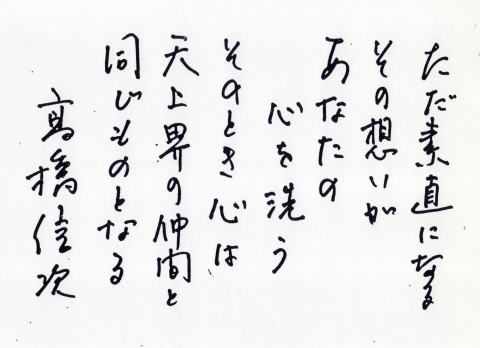 ただ素直になる
その想いが
あなたの
心を洗う
そのとき心は
天上界の仲間と
同じものとなる
高橋信次